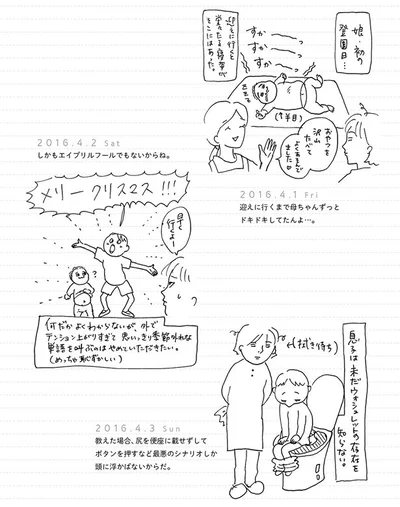 娘・初の
登園日…
迎えに行くと
堂々たる寝姿が
そこにはあった。
すか
すか
すか
(半目)
おやつを
沢山
たべて
よくあそんで
ました
2016.4.1 Fri
迎えに行くまで母ちゃんずっと
ドキドキしてたんよ…。
2016.4.2 Sat
しかもエイプリルフールでもないからね。
メリークリスマス!!!
早く
行くよー
何だか よくわからないが、外で
テンション上がりすぎて 思いっきり季節外れな
単語を叫ぶのはやめていただきたい。
(めっちゃ恥ずかしい)
息子は未だウォシュレットの存在を
知らない。
(拭き待ち)
2016.4.3 Sun
教えた場合、尻を便座に載せずして
ボタンを押すなど最悪のシナリオしか
頭に浮かばないからだ。